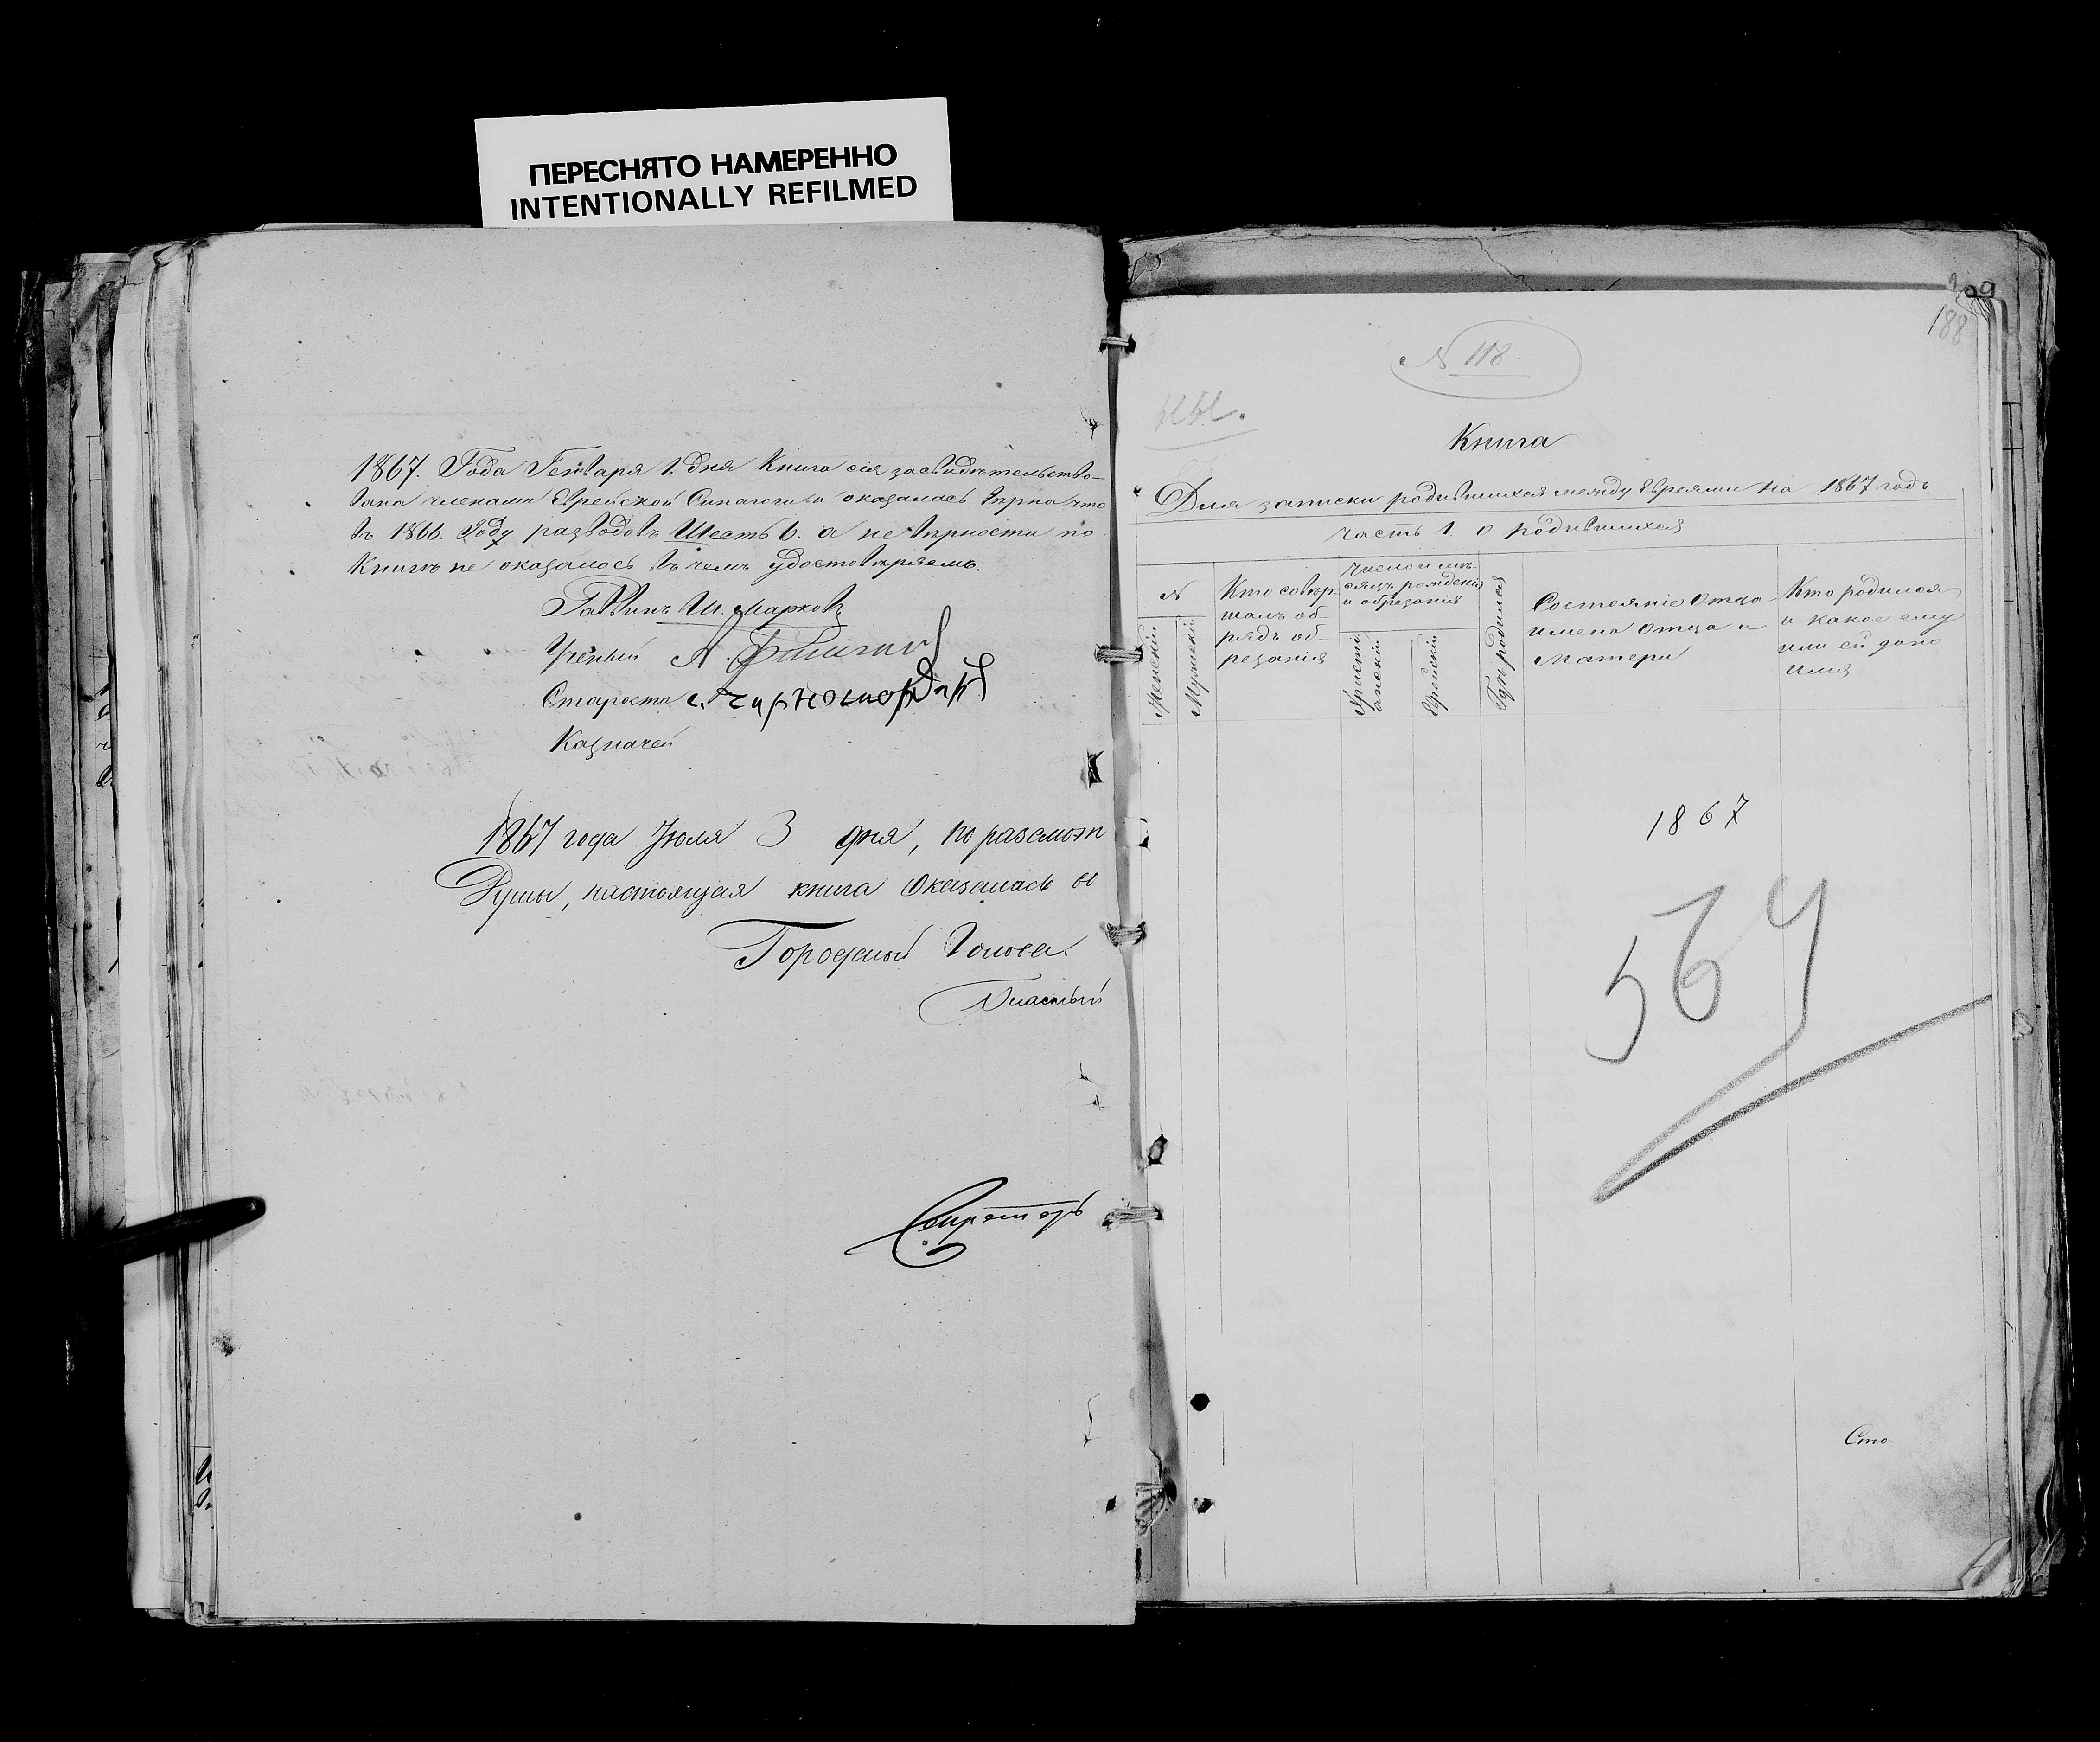 ПЕРЕСНЯТО НАМЕРЕННО
INTENTIONALLY REFILMED
1867. Года Генваря 1. дня Книга сія засвидѣтельство-
вана членами Еврейской Синагоги и оказалась вѣрна что
въ 1866. Году разводовъ Шесть 6. а не вѣрности по
Книгѣ не оказалось въ чемъ удостовѣряемъ.
Раввинъ Ш. Марковъ
Ученый А.
Староста
Казначей
1867 года Іюля 3 дня, по разсмотр
Думы, настоящая книга оказалась въ
Городской Голова
Секретарь
188
N 118
Книга
Для записки родившихся между Евреями на 1867 годъ
часть 1 о родившихся
N
Женскій
Мужескій
Кто совѣр-
шалъ об-
рядъ об-
резанія
Число и мѣ-
сяцъ рожденія
и обрезанія
Христі
анскій
Еврейскій
Гдѣ родился
Состояніе Отца
имена Отца и
Матери
Кто родился
и какое ему
или ей дано
имя
1867
564
Сто-